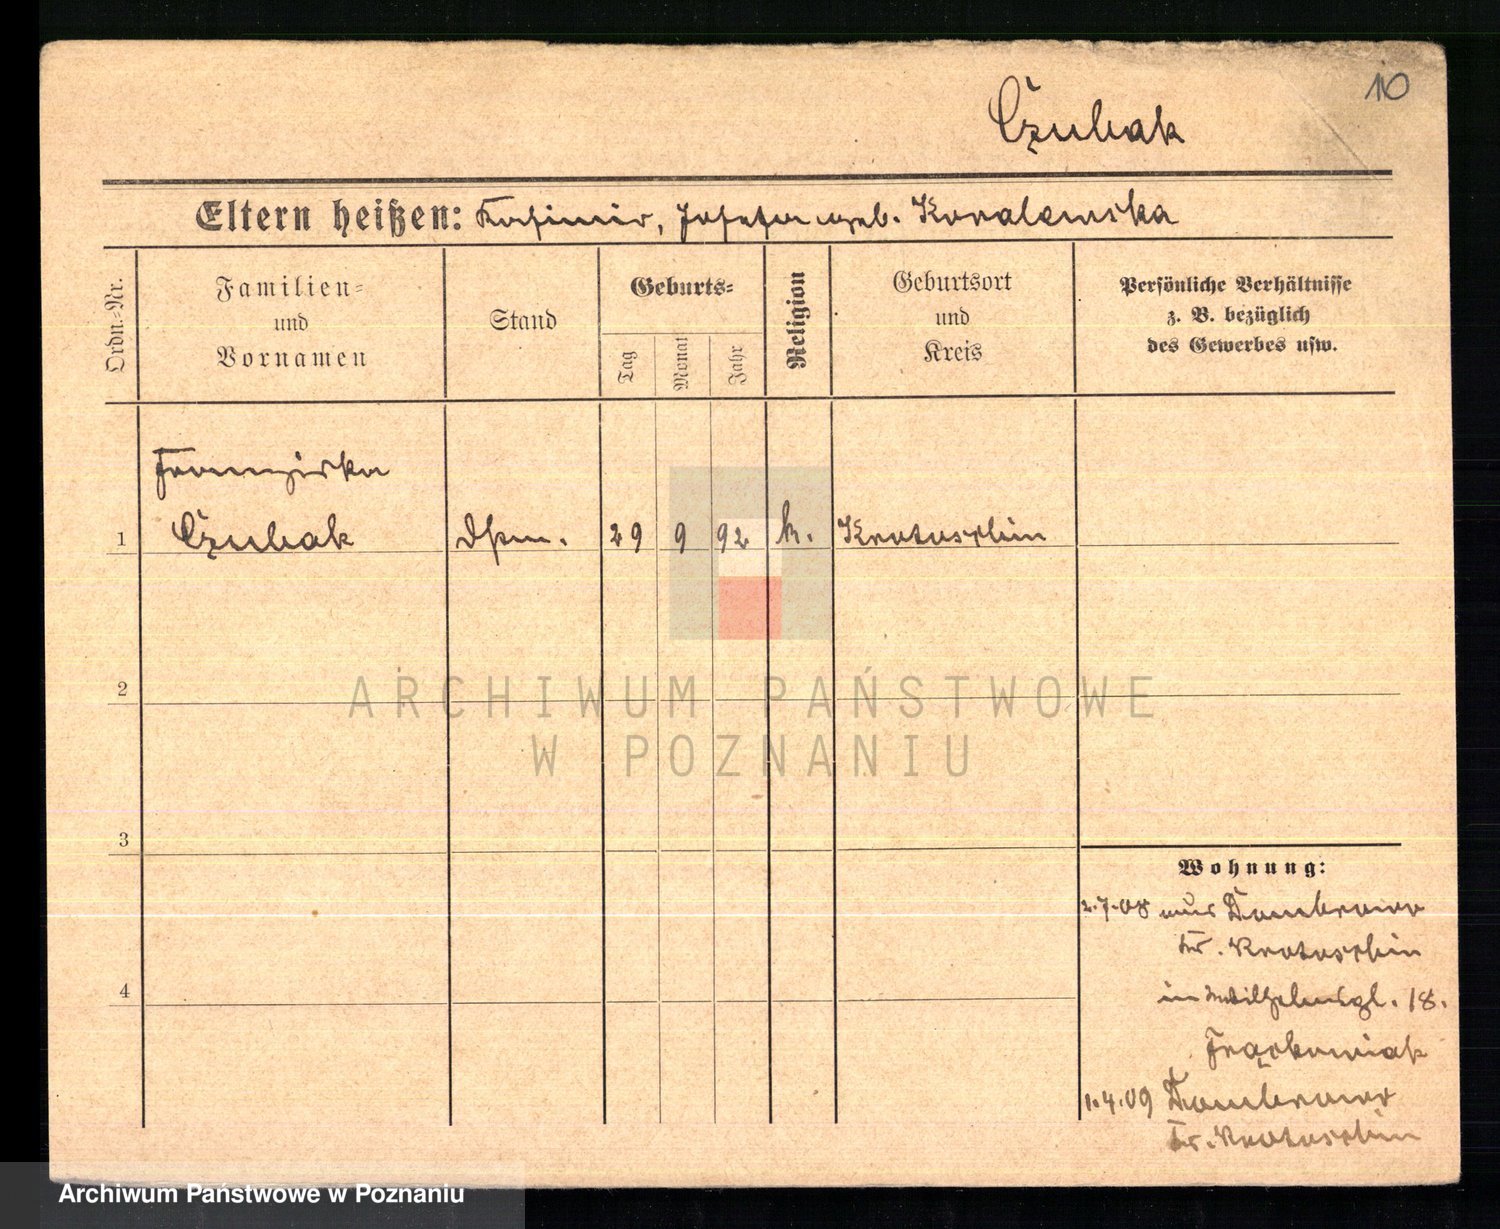 10
Czubak
Eltern heißen: Kasimir, Josefa geb. Kowalewska
Ordn.-Nr.
Familien-
und
Vornamen
Stand
Geburts-
Tag
Monat
Jahr
Religion
Geburtsort
und
Kreis
Persönliche Verhältnisse
z. B. bezüglich
des Gewerbes usw.
Franziska
1 Czubak Dstm. 29 9 92 k. Krotoschin
2
3
4
Wohnung:
2.7.08 aus Dombrowo
Kr. Krotoschin
in Wilhelmspl. 18.
Frąckowiak
1.4.09 Dombrowo
Kr. Krotoschin
ARCHIWUM PAŃSTWOWE
W POZNANIU
Archiwum Państwowe w Poznaniu